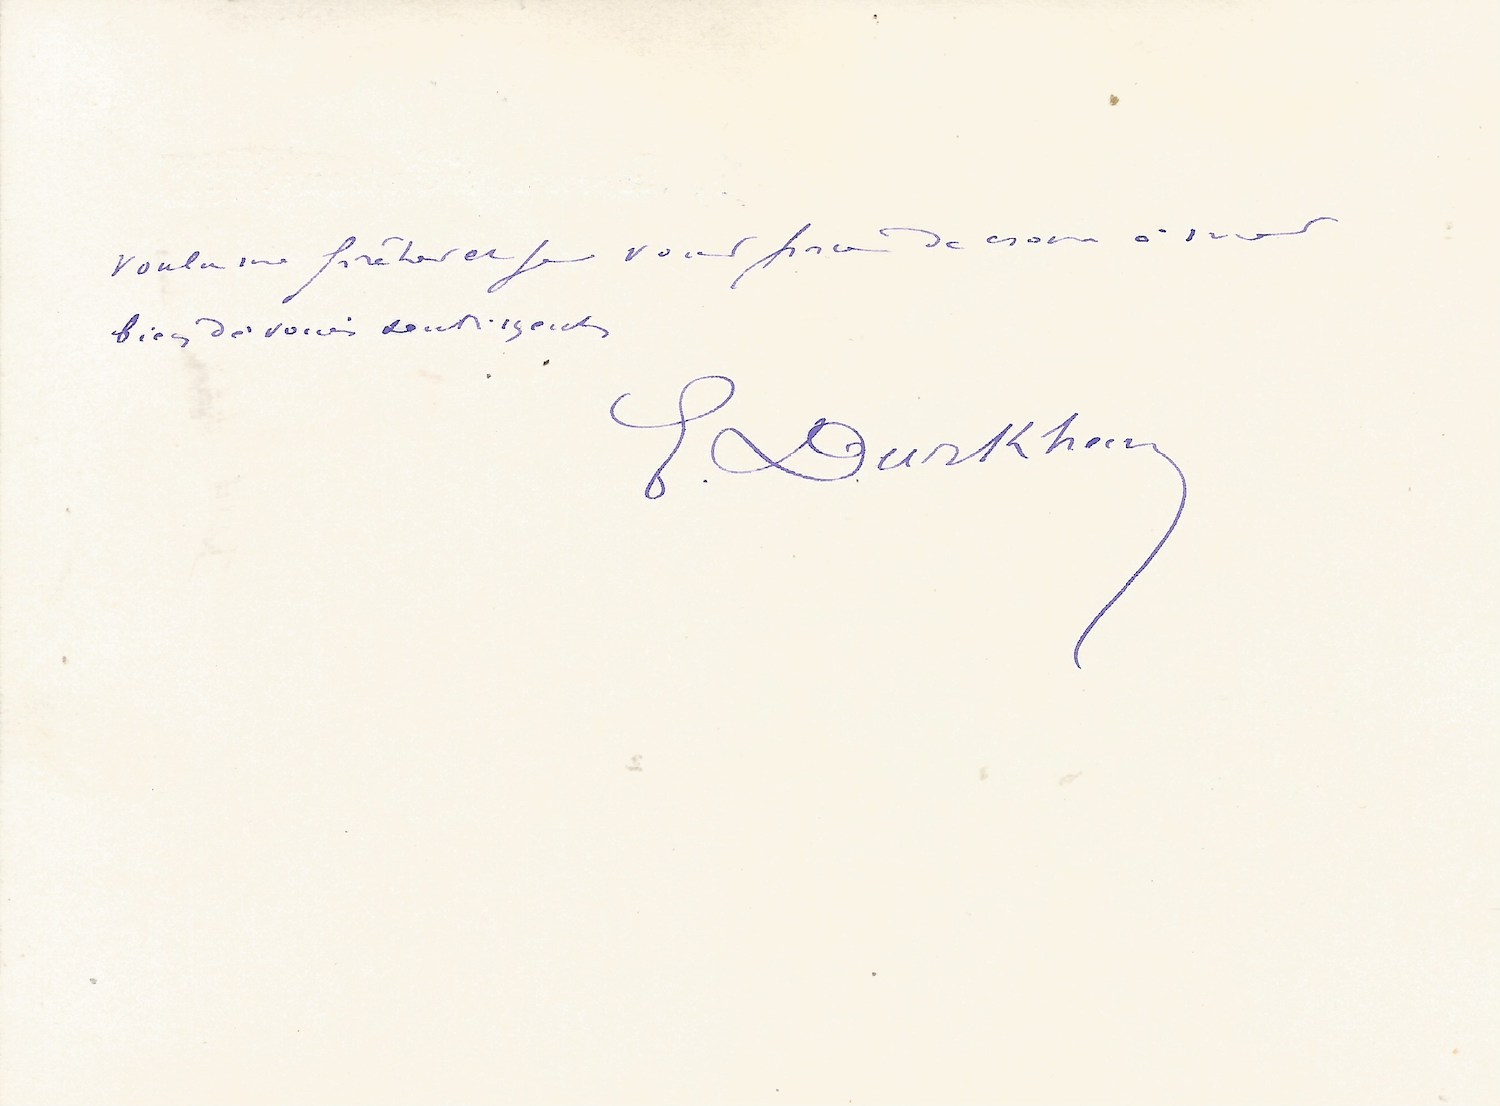 voulu me prêter et je vous prie de croire à mes
bien dévoués sentiments
E. Durkheim